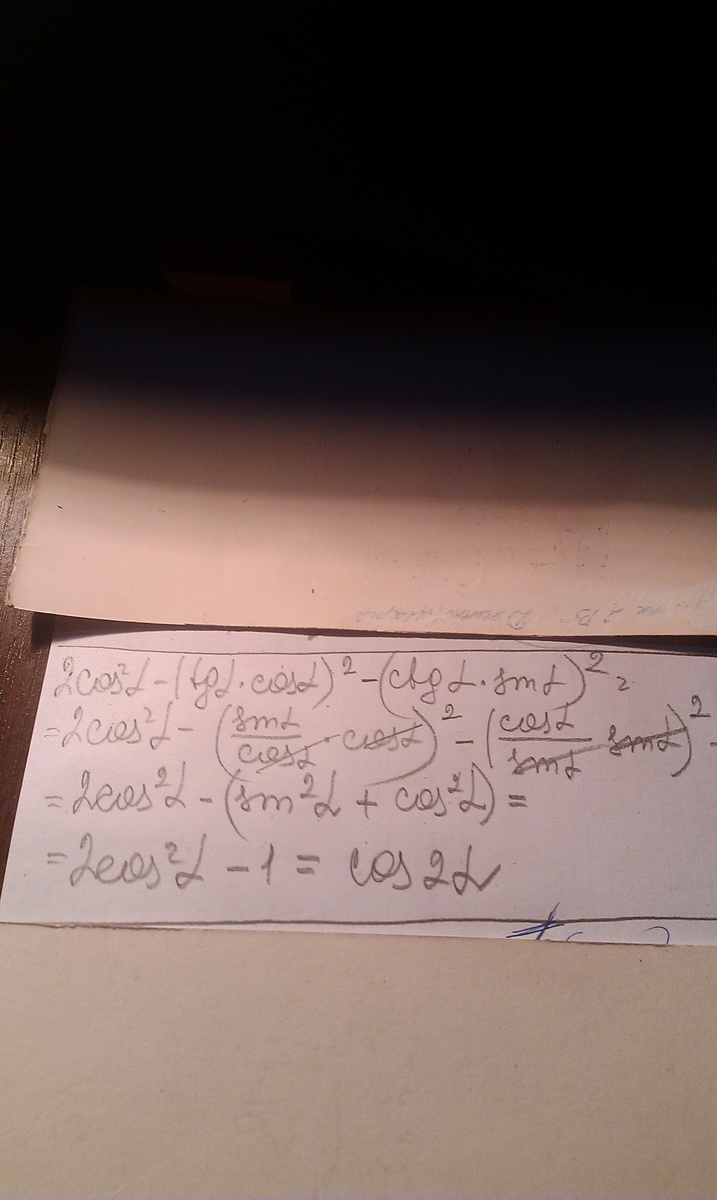 2cos²α - (tgα · cosα)² - (ctgα · sinα)² =
= 2cos²α - (sinα/cosα · cosα)² - (cosα/sinα · sinα)² -
= 2cos²α - (sin²α + cos²α) =
= 2cos²α - 1 = cos2α